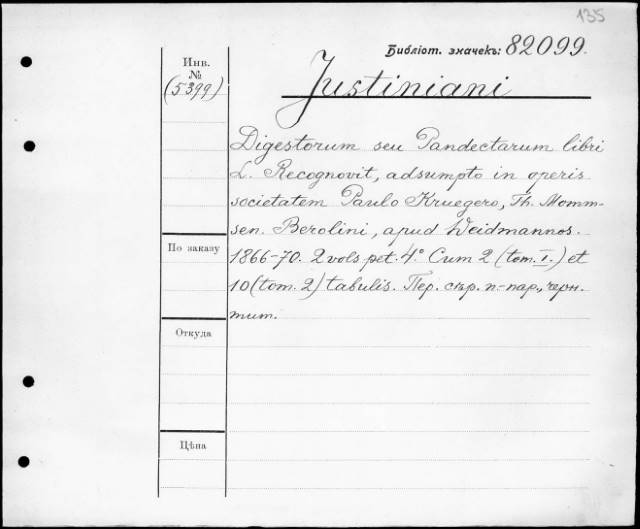 135
Библіот. значекъ: 82099.
Инв.
№
(5399)
Justiniani
Digestorum seu Pandectarum libri
L. Recognovit, adsumpto in operis
societatem Paulo Kruegero, Th. Momm-
sen. Berolini, apud Weidmannos.
1866-70. 2 vols pet. 4° Cum 2 (tom. I.) et
10 (tom. 2) tabulis. Пер. сѣр. п.-пар., черн.
тит.
По заказу
Откуда
Цѣна